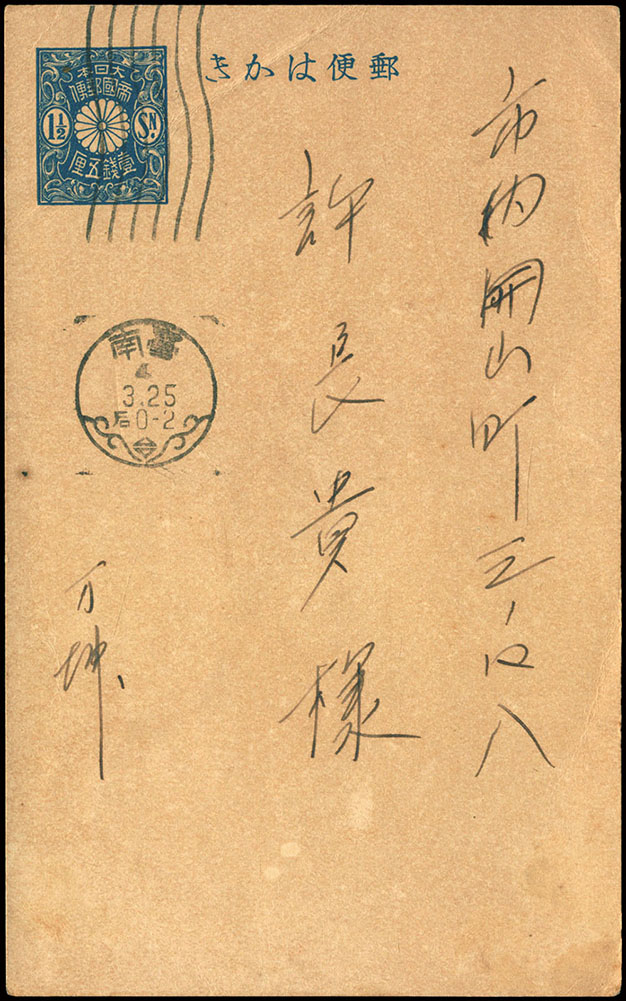 郵便はかき
大日本
帝國郵便
1½ SN.
壹錢五厘
市内開山町三ノ 八
許長貴様
臺南
3.25
后0-2
万坤